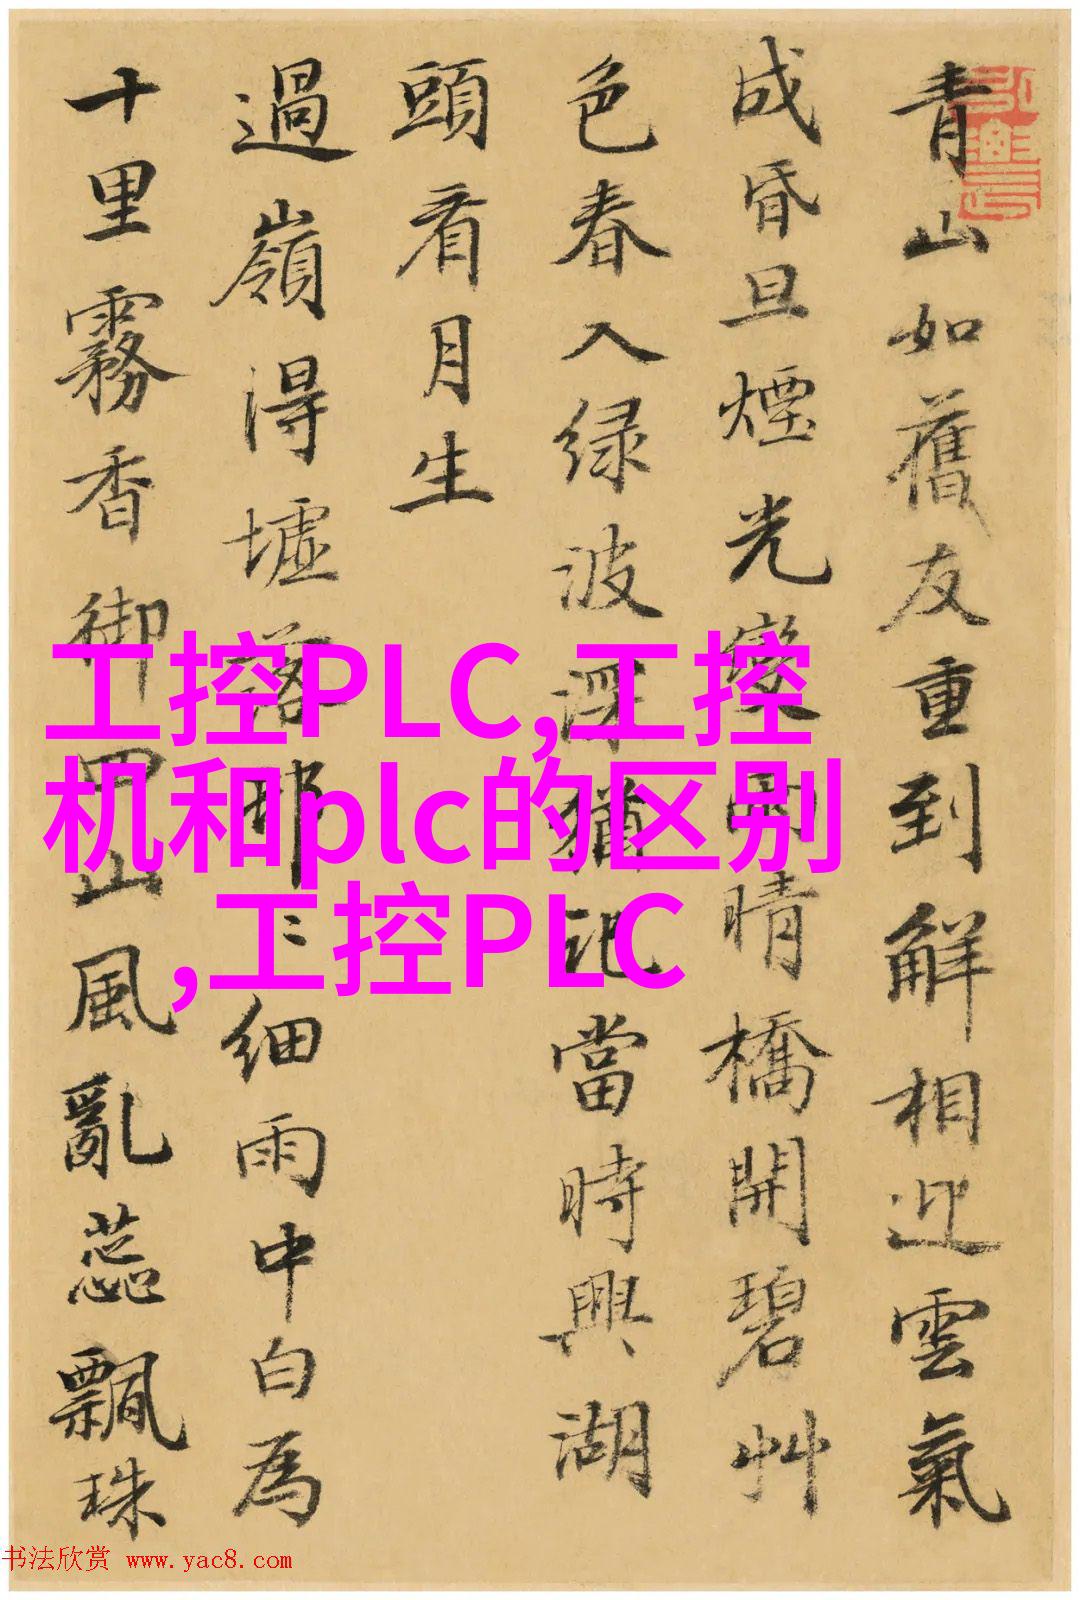 青山如舊友重到解相迎雲氣
成昏旦煙光變雨晴橋開碧艸
色春入绿波深猶記當時興湖
頭看月生
過嶺得墟落那〻细雨中白為
十里霧香御四山風亂蕊飄珠
工控PLC,工控
机和plc的区别
,工控PLC
书法欣赏 www.yac8.com